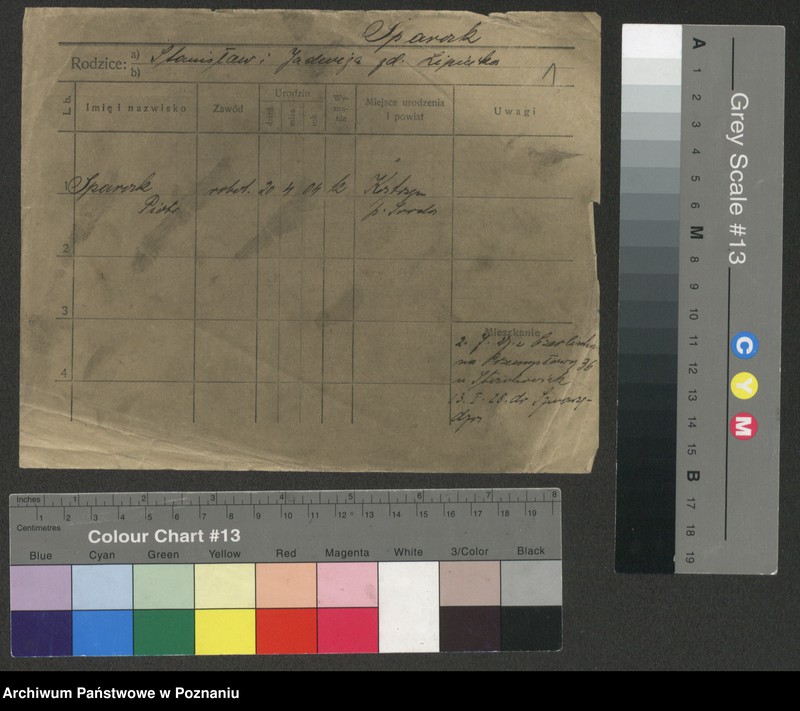 Sparok
Rodzice: a) Stanisław i Jadwiga gd. Lipińska
b)
L. b.
Imię i nazwisko
Zawód
Urodzin
dzień
mies.
rok
Wy-
zna-
nie
Miejsce urodzenia
i powiat
Uwagi
1 Sparok robot. 20 4 04 k Kostrzyn
Piotr p. Środa
2
3
Mieszkanie
na Przemysłową 36
u
4
13. I. 28. do
A 1 2 3 4 5 6 M 8 9 10 11 12 13 14 15 B 17 18 19
Grey Scale #13
C Y M
Inches 1 2 3 4 5 6 7 8
Centimetres 1 2 3 4 5 6 7 8 9 10 11 12 13 14 15 16 17 18 19
Colour Chart #13
Blue Cyan Green Yellow Red Magenta White 3/Color Black
Archiwum Państwowe w Poznaniu